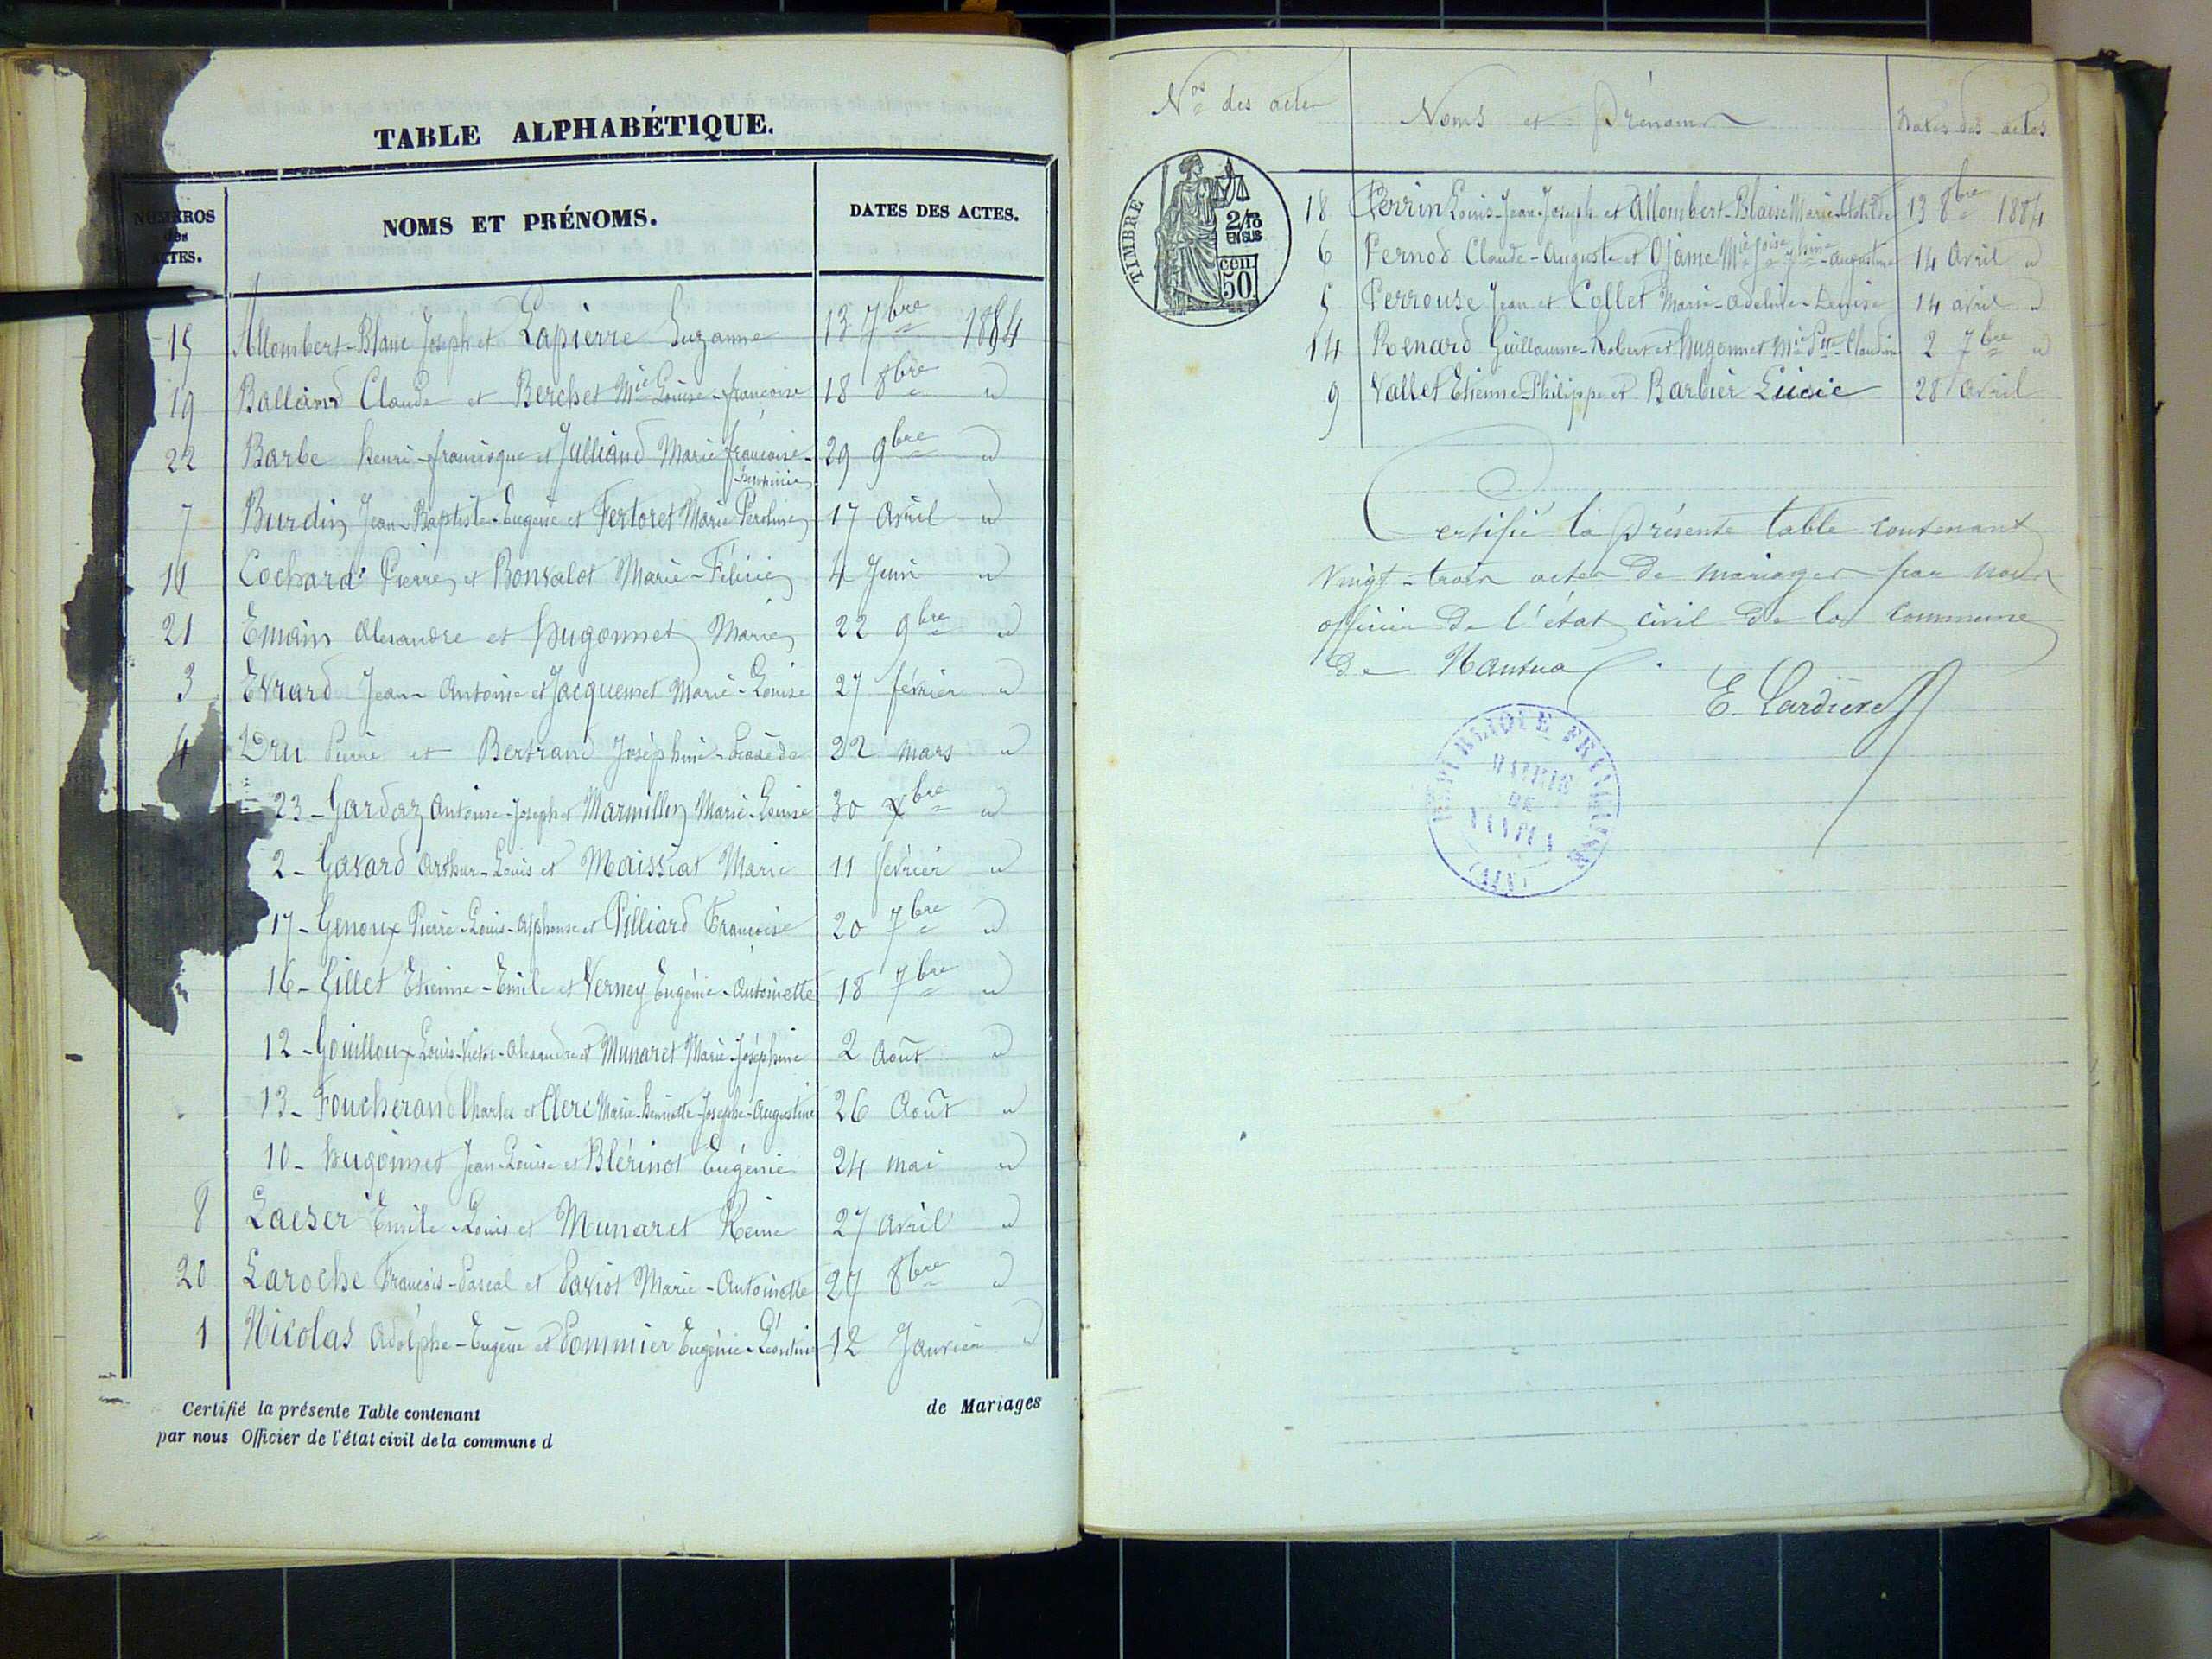 TABLE ALPHABÉTIQUE.
NUMÉROS des ACTES. NOMS ET PRÉNOMS. DATES DES ACTES.
15 Allombert-Blanc Joseph et Lapierre Suzanne 13 7bre 1884
19 Balland Claude et Berchet Mie Louise-françoise 18 8bre "
22 Barbe henri-francisque et Julliand Marie françoise- 29 9bre "
7 Burdin Jean-Baptiste-Eugène et Fertoret Marie Péroline 17 Avril "
11 Cochard Pierre et Bonvalot Marie-Félicie 4 Juin "
21 Emain Alexandre et hugonnet Marie 22 9bre "
3 Evrard Jean-Antoine et Jacquemet Marie-Louise 27 février "
4 Dru Pierre et Bertrand Joséphine- 22 mars "
23 - Gardaz Antoine-Joseph et Marmillon Marie-Louise 30 Xbre "
2 - Gavard Arthur-Louis et Maissiat Marie 11 février "
17 - Genoux Pierre-Louis-Alphonse et Pilliard Françoise 20 7bre "
16 - Gillet Etienne-Emile et Verney Eugénie-Antoinette 18 7bre "
12 - Gouilloux Louis-Victor-Alexandre et Munaret Marie-Joséphine 2 Août "
13 - Foucherand Charles et Clerc Marie-henriette-Josephe-Augustine 26 Août "
10 - hugonnet Jean-Louis et Blérinot Eugénie 24 mai "
8 Laeser Emile-Louis et Munaret Reine 27 avril "
20 Laroche François-Pascal et Paviot Marie-Antoinette 27 8bre "
1 Nicolas Adolphe-Eugène et Pommier Eugénie-Léontine 12 Janvier "
Certifié la présente Table contenant de Mariages
par nous Officier de l'état civil de la commune d
Nos des actes Noms et Prénoms Dates des actes
TIMBRE
2/10
EN SUS
cen
50
18 Perrin Louis-Jean-Joseph et Allombert-Blaise Marie-Clotilde 13 8bre 1884
6 Pernod Claude-Auguste et Ojame Mie foise Jhine-Augustine 14 Avril "
5 Perrouse Jean et Collet Marie-Adeline-Denise 14 avril "
14 Renard Guillaume-Robert et hugonnet Mie Ptte-Claudine 2 7bre "
9 Vallet Etienne-Philippe et Barbier Lucie 28 Avril
Certifié la présente table contenant
vingt-trois actes de mariages par nous
officier de l'état civil de la commune
de Nantua.
E. Lardière
RÉPUBLIQUE FRANÇAISE
MAIRIE
DE
NANTUA
(AIN)